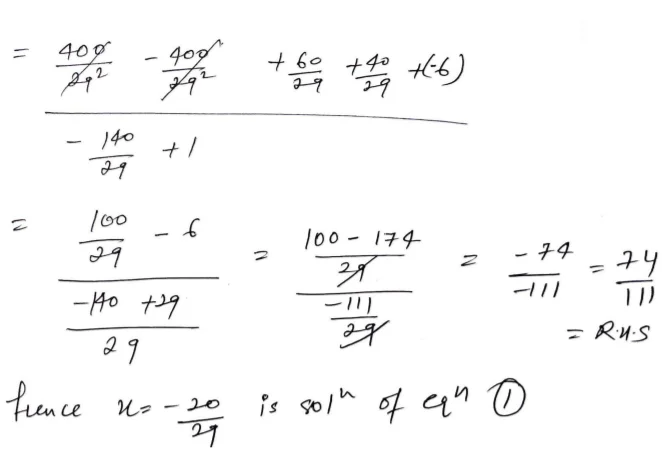 = (400/29² - 400/29² + 60/29 + 40/29 + (-6)) / (- 140/29 + 1)
= (100/29 - 6) / ((-140 + 29)/29) = ((100 - 174)/29) / (-111/29) = -74/-111 = 74/111
= R.H.S
hence x = - 20/29 is solⁿ of eqⁿ ①